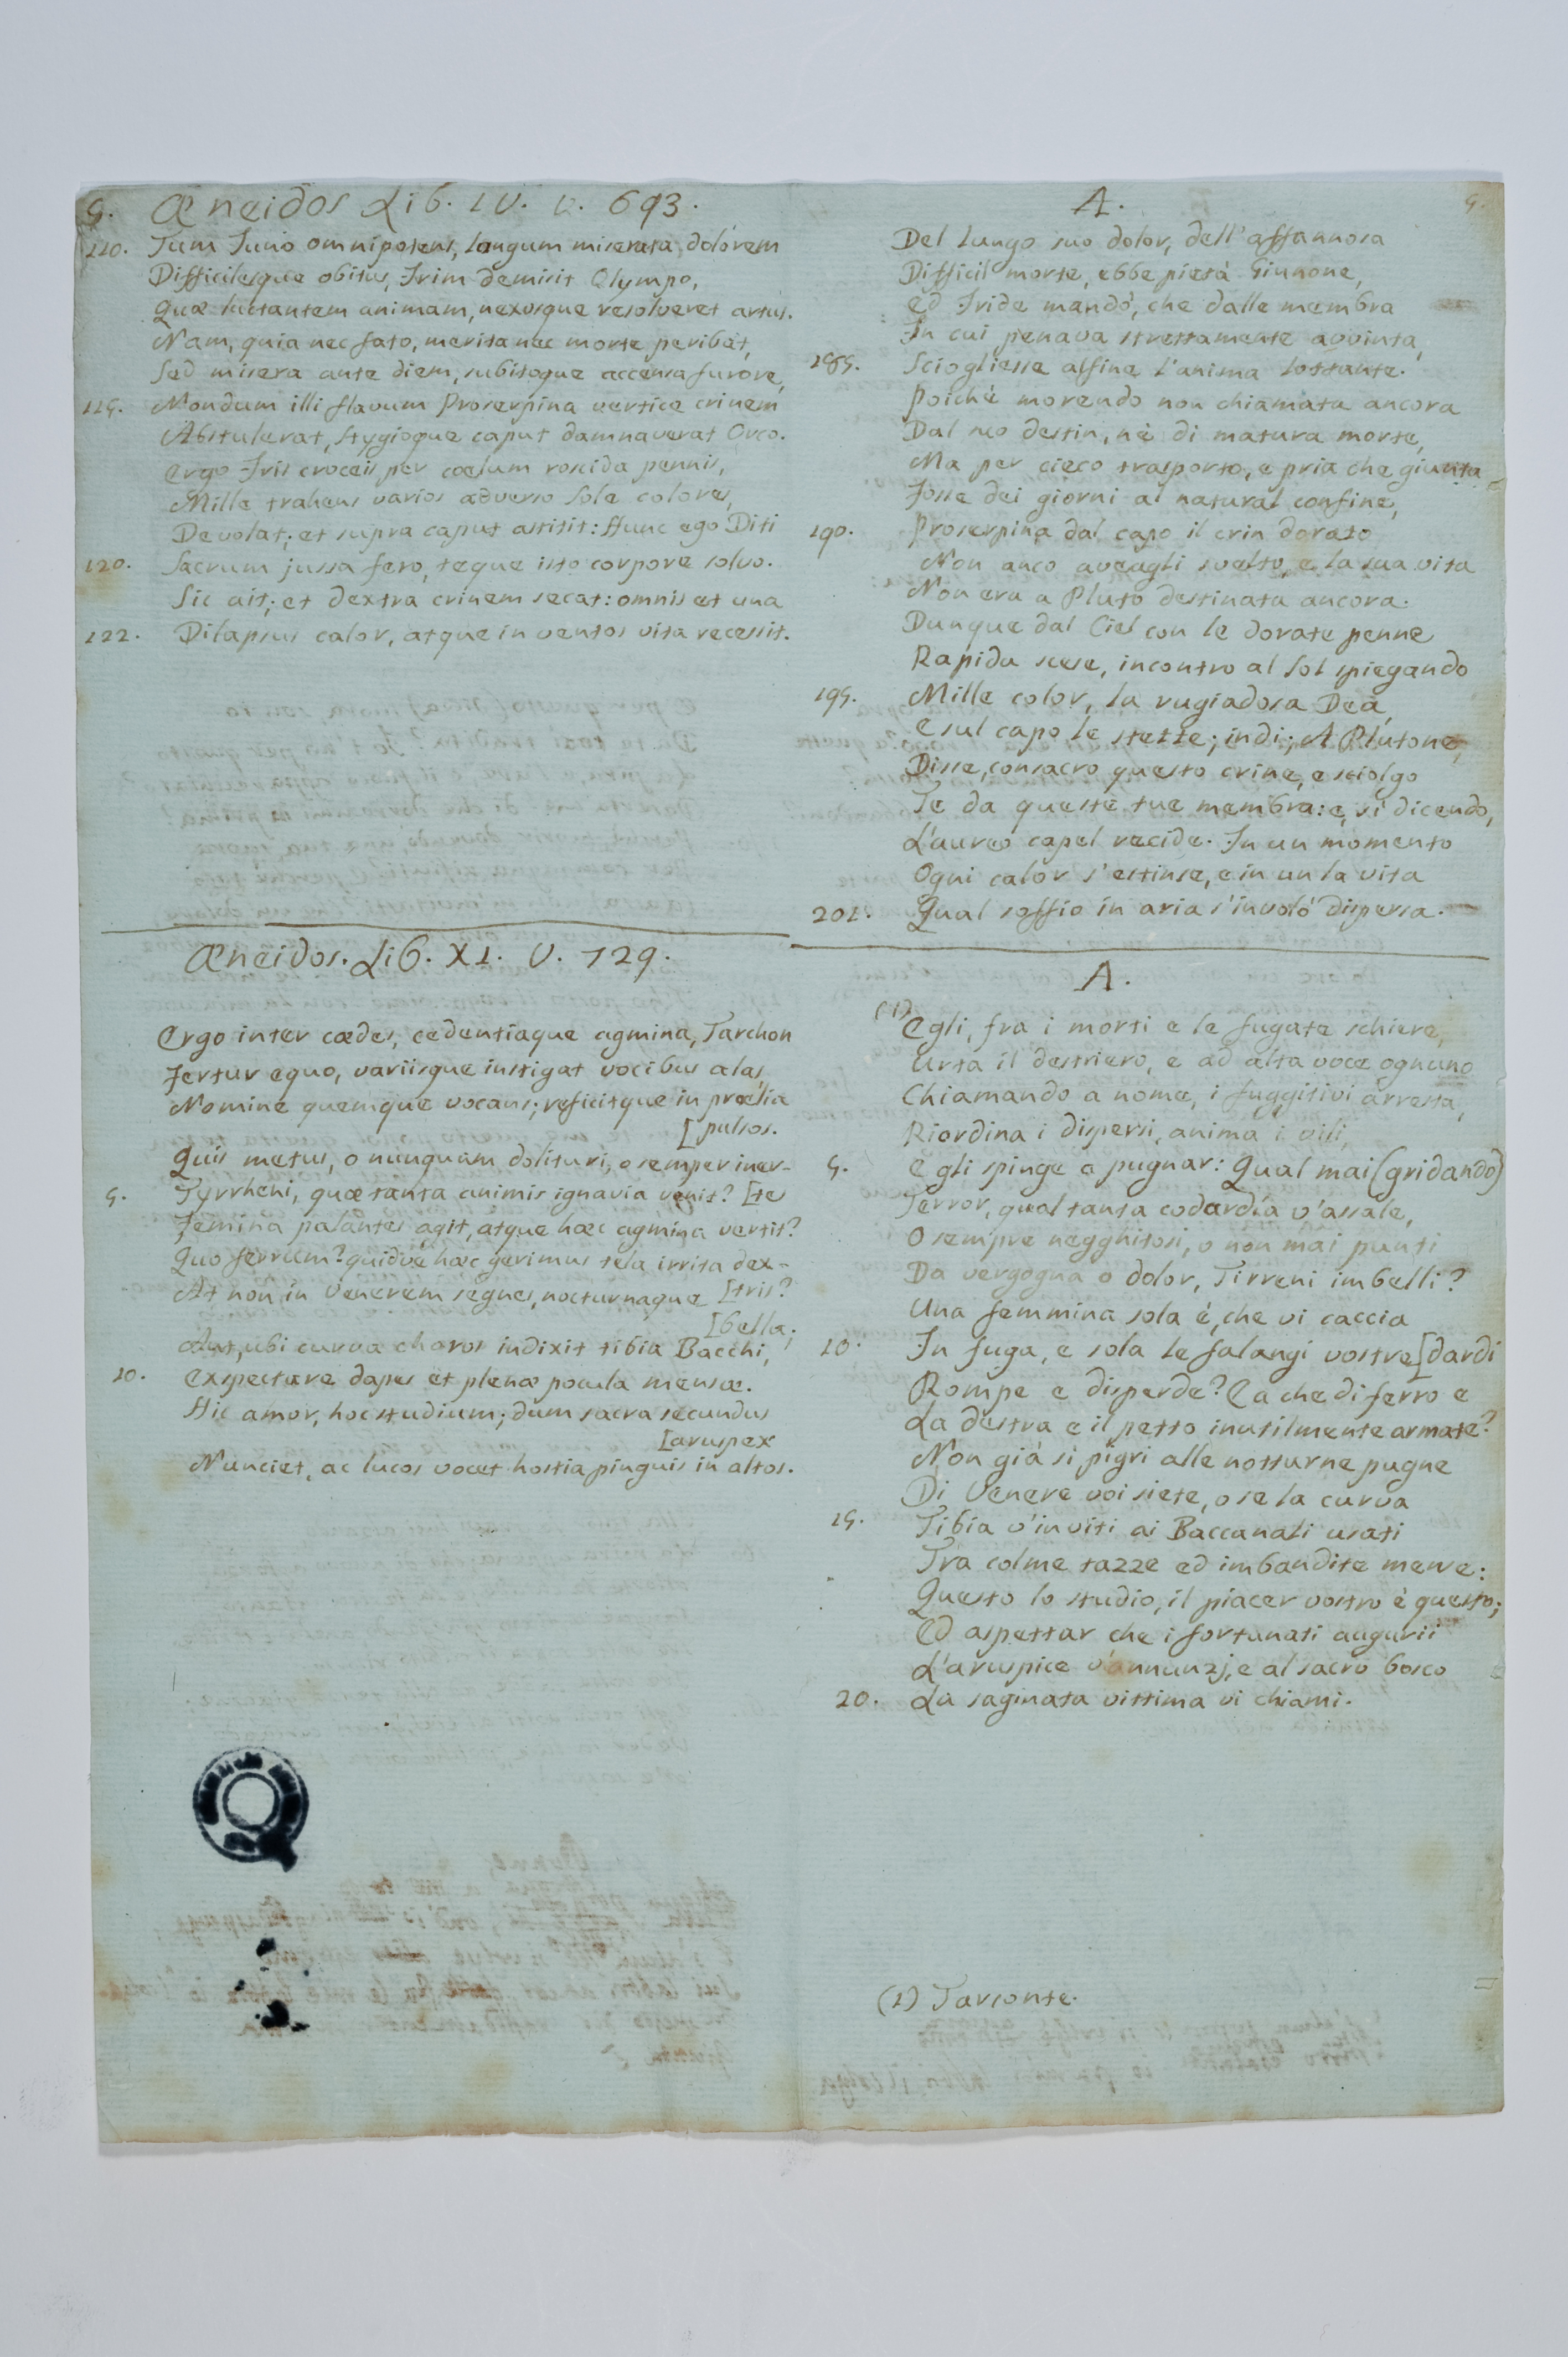 5. Æneidos Lib. IV. v. 693.
110. Tum Juno omnipotens, longum miserata dolorem
Difficilesque obitus, Irim demisit Olympo,
Quæ luctantem animam, nexosque resolveret artus.
Nam, quia nec fato, merita nec morte peribat,
Sed misera ante diem, subitoque accensa furore,
115. Nondum illi flavum Proserpina vertice crinem
Abstulerat, Stygioque caput damnaverat Orco.
Ergo Iris croceis per cœlum roscida pennis,
Mille trahens varios adverso Sole colores,
Devolat; et supra caput astitit: Hunc ego Diti
120. Sacrum jussa fero, teque isto corpore solvo.
Sic ait; et dextra crinem secat: omnis et una
122. Dilapsus calor, atque in ventos vita recessit.
Æneidos. Lib. XI. V. 729.
Ergo inter cædes, cedentiaque agmina, Tarchon
Fertur equo, variisque instigat vocibus alas,
Nomine quemque vocans; reficitque in prœlia
[pulsos.
Quis metus, o nunquam dolituri, o semper iner-
5. Tyrrheni, quæ tanta animis ignavia venit? [tes
Femina palantes agit, atque hæc agmina vertit?
Quo ferrum? quidve hæc gerimus tela irrita dex-
At non in Venerem segnes, nocturnaque [tris?
[bella;
Aut, ubi curva choros indixit tibia Bacchi,
10. Expectare dapes et plenæ pocula mensæ.
Hic amor, hoc studium; dum sacra secundus
[aruspex
Nunciet, ac lucos vocet hostia pinguis in altos.
A. 5.
Del lungo suo dolor, dell'affannosa
Difficil morte, ebbe pietà Giunone,
Ed Iride mandò, che dalle membra
In cui penava strettamente avvinta,
185. Sciogliesse alfine l'anima lottante.
Poichè morendo non chiamata ancora
Dal suo destin, nè di matura morte,
Ma per cieco trasporto, e pria che giunta
Fosse dei giorni al natural confine,
190. Proserpina dal capo il crin dorato
Non anco aveagli svelto, e la sua vita
Non era a Pluto destinata ancora.
Dunque dal Ciel con le dorate penne
Rapida scese, incontro al Sol spiegando
195. Mille color, la rugiadosa Dea,
E sul capo le stette; indi; A Plutone,
Disse, consacro questo crine, e sciolgo
Te da queste tue membra: e, sì dicendo,
L'aureo capel recide. In un momento
Ogni calor s'estinse, e in un la vita
201. Qual soffio in aria s'involò dispersa.
A.
(1) Egli, fra i morti e le fugate schiere,
Urta il destriero, e ad alta voce ognuno
Chiamando a nome, i fuggitivi arresta,
Riordina i dispersi, anima i vili,
5. E gli spinge a pugnar: Qual mai (gridando)
Terror, qual tanta codardía v'assale,
O sempre negghitosi, o non mai punti
Da vergogna o dolor, Tirreni imbelli?
Una femmina sola è, che vi caccia
10. In fuga, e sola le falangi vostre [dardi
Rompe e disperde? E a che di ferro e
La destra e il petto inutilmente armate?
Non già sì pigri alle notturne pugne
Di Venere voi siete, o se la curva
15. Tibia v'inviti ai Baccanali usati
Tra colme tazze ed imbandite mense:
Questo lo studio, il piacer vostro è questo;
Ed aspettar che i fortunati augurii
L'aruspice v'annunzj, e al sacro bosco
20. La saginata vittima vi chiami.
(1) Tarconte.